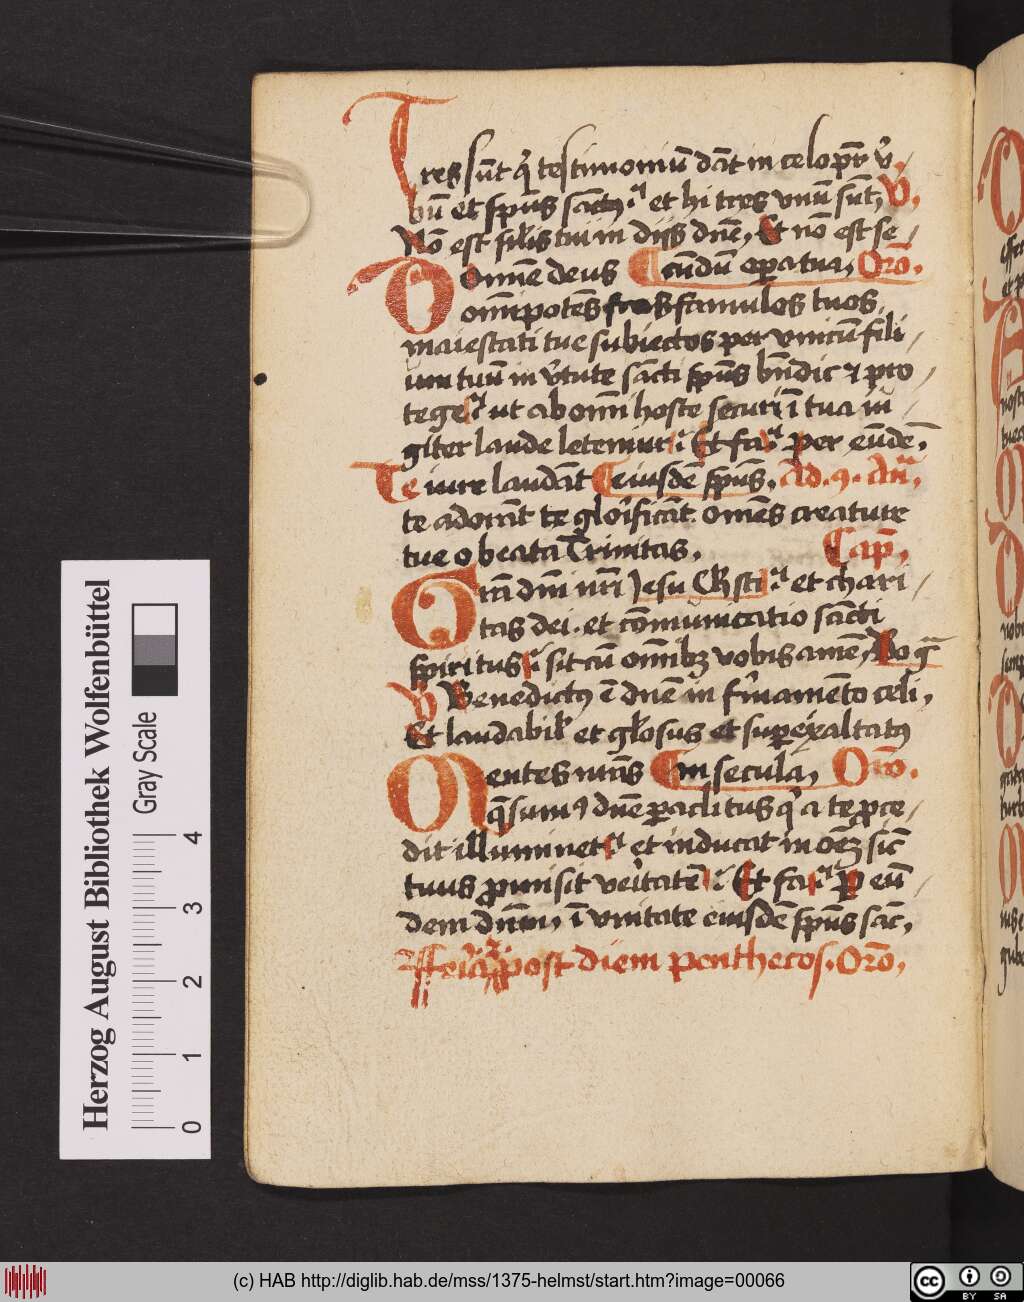 Tres sūt q̄ testimoniū dāt in celo pr̄ v̄-
bū et sp̄us sāctꝫ et hi tres vnū sūt, V.
Nō est sil̄is tui in diis dn̄e, Et nō est se-
Domīe deus cūdū opera tua, Orō.
om̄ipotēs famulos tuos
maiestati tue subiectos per vnicū fili-
um tuū in v̄tute sācti sp̄us bn̄dic ⁊ pro-
tege ut ab om̄i hoste securi ī tua iu-
giter laude letemur: Et per eūdē
Te iure laudāt eiusdē sp̄us, Ad .9. An̄,
te adorāt te glorificāt omēs creature
tue o beata Trinitas, Cap̄,
Grā dn̄i nr̄i Jesu Christi et chari-
tas dei. et cōmunicatio sācti
spiritus: sit cū om̄ibꝫ vobis amē,
V Benedictꝰ ē dn̄e in firmamēto celi,
Et laudabil̄ et gl̄osus et superexaltatꝰ
Mentes nr̄as in secula, Orō.
q̄sumꝰ dn̄e paraclitus q̄ a te proce-
dit illuminet et inducat in oēꝫ sic̄
tuus promisit veritatē: Et ꝑ eū-
dem dn̄m, ī vnitate eiusdē sp̄us sāc,
post diem penthecos. Orō,
Herzog August Bibliothek Wolfenbüttel
Gray Scale
0 1 2 3 4
(c) HAB http://diglib.hab.de/mss/1375-helmst/start.htm?image=00066
cc BY SA